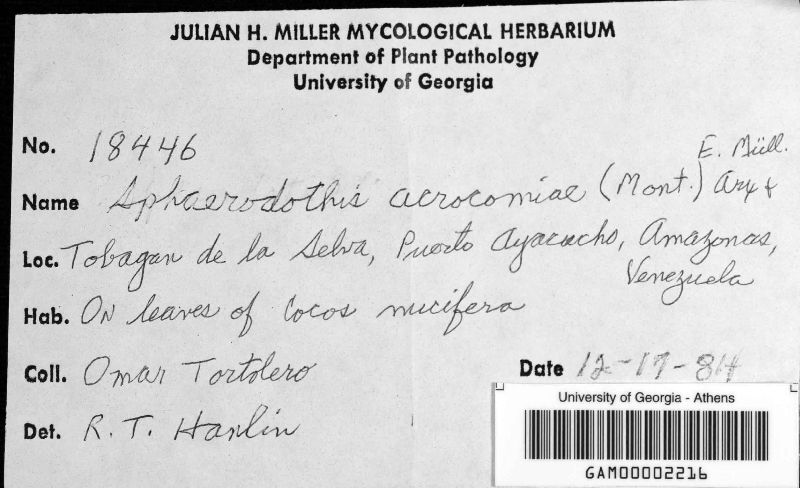 JULIAN H. MILLER MYCOLOGICAL HERBARIUM
Department of Plant Pathology
University of Georgia
No. 18446
E. Müll.
Name Sphaerodothis acrocomiae (Mont.) Arx &
Loc. Tobagan de la Selva, Puerto Ayacucho, Amazonas,
Venezuela
Hab. On leaves of Cocos nucifera
Coll. Omar Tortolero
Date 12-17-84
Det. R. T. Hanlin
University of Georgia - Athens
GAM00002216